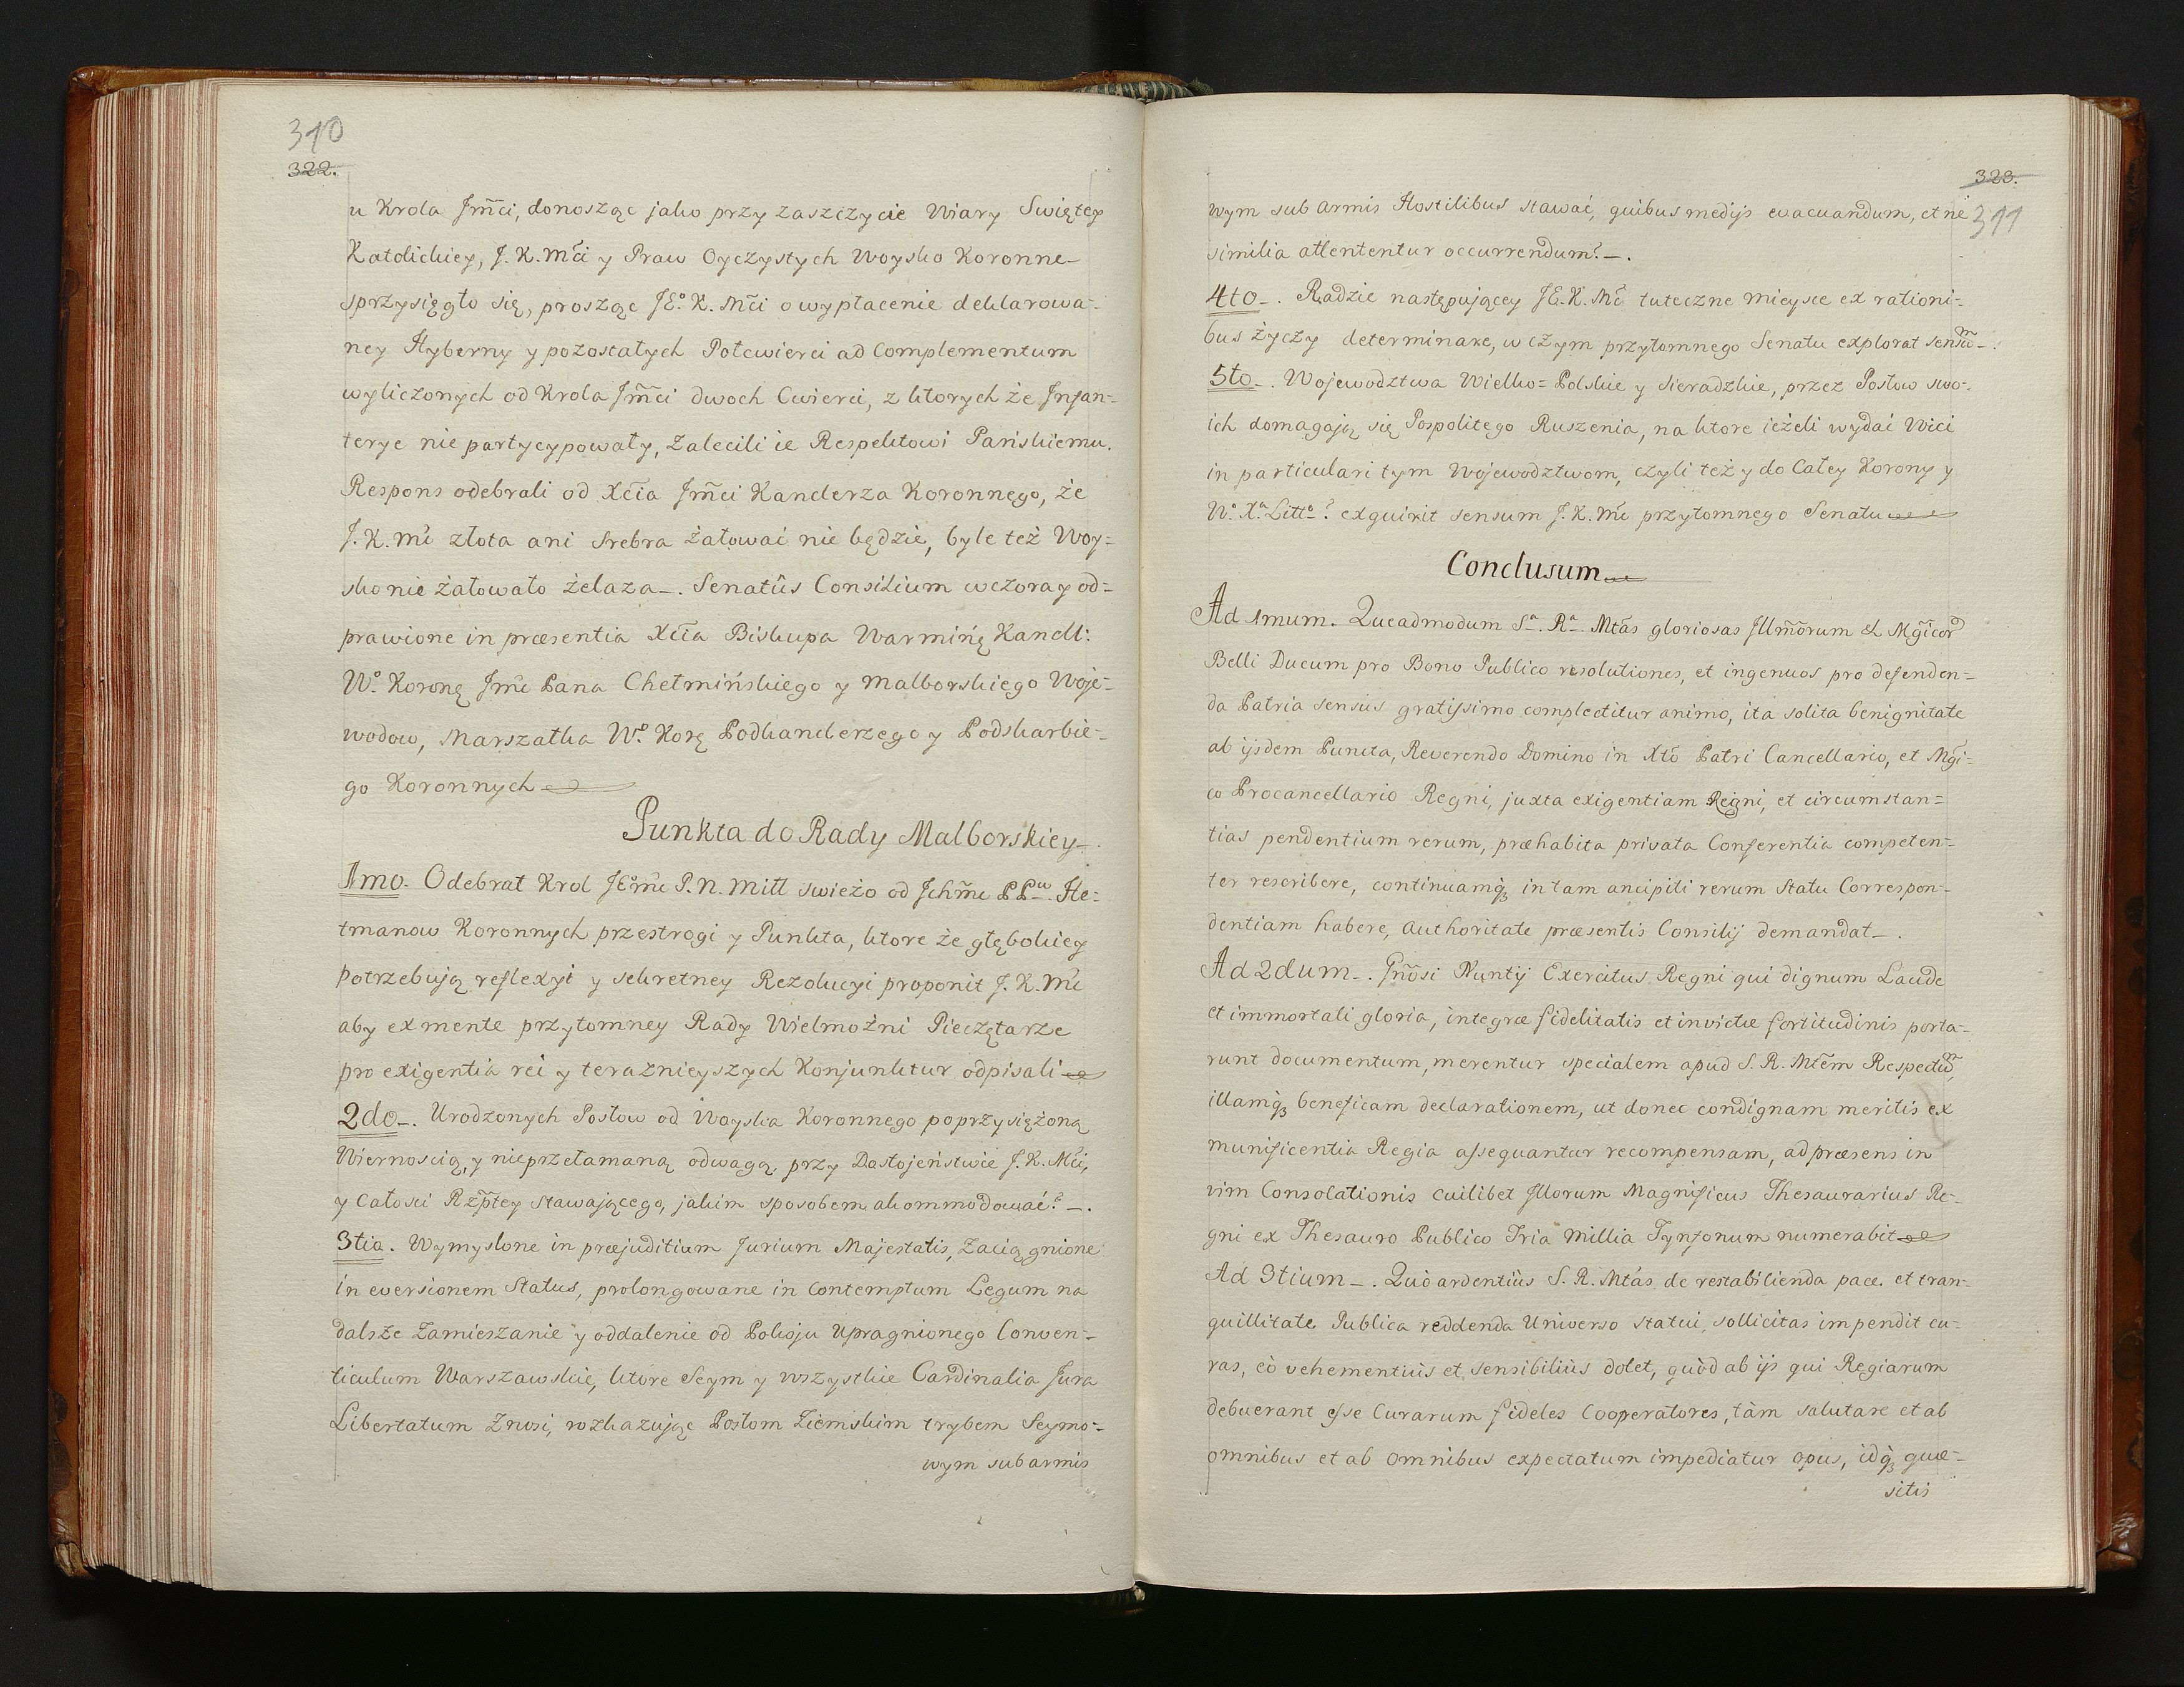 310
322.
u Krola Jm̃ci, donosząc jako przy zaszczycie Wiary Swiętey
Katolickiey, J. K. Mći y Praw Oyczystych Woysko Koronne
sprzysięgło się, prosząc JE.º K. Mći o wypłacenie deklarowa-
ney Hyberny y pozostałych Połcwierci ad complementum
wyliczonych od Krola Jm̃ci dwoch Cwierci, z ktorych że Infan=
terye nie partycypowały, zalecili ie Respektowi Pańskiemu.
Respons odebrali od Xćia Jm̃ci Kanclerza Koronnego, że
J. K. Mć złota ani srebra żałować nie będzie, byle też Woy=
sko nie żałowało żelaza_. Senatûs Consilium wczoray od=
prawione in præsentia Xćia Biskupa Warmińs̨ Kancll:
Wº. Koronę Jmć Pana Chełmińskiego y Malborskiego Woje=
wodow, Marszałka Wº. Korę Podkanclerzego y Podskarbie=
go Koronnych
Punkta do Rady Malborskiey_.
1mo. Odebrał Krol JEºmć P. N. Mill swieżo od Jchm̃c PPw. He=
tmanow Koronnych przestrogi y Punkta, ktore że głębokiey
potrzebują reflexyi y sekretney Rezolucyi proponit J. K. Mć
aby ex mente przytomney Rady Wielmożni Pieczętarze
pro exigentia rei y teraznieyszych Konjunktur odpisali
2do_. Urodzonych Posłow od Woyska Koronnego poprzysiężoną
Wiernoscią, y nieprzełamaną odwagą, przy Dostojeństwie J. K. Mći,
y Całosci Rzp̃tey stawającego, jakim sposobem akommodować?_.
3tia. Wymyslone in præjuditium Jurium Majestatis, zaciągnione
in eversionem Status, prolongowane in contemptum Legum na
dalsze zamieszanie y oddalenie od Pokoju upragnionego Conven-
ticulum Warszawskie, ktore Seym y wszystkie Cardinalia Jura
Libertatum znosi, rozkazując Posłom Ziemskim trybem Seymo-
wym sub armis
323.
311
wym sub armis Hostilibus stawać, quibus medijs evacuandum, et ne
similia attententur occurrendum?_.
4to_. Radzie następującey JE. K. Mć tuteczne mieysce ex rationi-
bus życzy determinare, w czym przytomnego Senatu explorat sensum_.
5to_. Wojewodztwa Wielko=Polskie y Sieradzkie, przez Posłow swo-
ich domagają się Pospolitego Ruszenia, na ktore ieżeli wydać Wici
in particulari tym Wojewodztwom, czyli też y do Całey Korony y
Wº. Xª. Littº? exquirit sensum J. K. Mć przytomnego Senatu
Conclusum
Ad 1mum. Queadmodum Sª. Rª. Mtás gloriosas Jllm̃orum & Mg̃icor
Belli Ducum pro Bono Publico resolutiones, et ingenuos pro defenden=
da Patria sensus gratissimo complectitur animo, ita solita benignitate
ab ijsdem Puncta, Reverendo Domino in Xtõ Patri Cancellario, et Mgi=
co Procancellario Regni, juxta exigentiam Regni, et circumstan=
tias pendentium rerum, præhabita privata Conferentia competen-
ter rescribere, continuamq̨ in tam ancipiti rerum statu Correspon-
dentiam habere, Authoritate præsentis Consilij demandat_.
Ad 2dum_. Gñosi Nuntij Exercitus Regni qui dignum Laude
et immortali gloria, integræ fidelitatis et invictæ fortitudinis porta-
runt documentum, merentur specialem apud S. R. Mtem̃ Respectum,
illamq̨ beneficam declarationem, ut donec condignam meritis ex
munificentia Regia assequantur recompensam, ad præsens in
vim Consolationis cuilibet Jllorum Magnificus Thesaurarius Re-
gni ex Thesauro Publico Tria Millia Tynfonum numerabit
Ad 3tium_. Quò ardentiùs S. R. Mtás de restabilienda pace et tran-
quillitate Publica reddenda Universo statui, sollicitas impendit cu-
ras, eò vehementiùs et sensibiliùs dolet, quòd ab ijs qui Regiarum
debuerant esse Curarum fideles Cooperatores, tàm salutare et ab
omnibus et ab omnibus expectatum impediatur opus, idq̨ quæ-
sitis